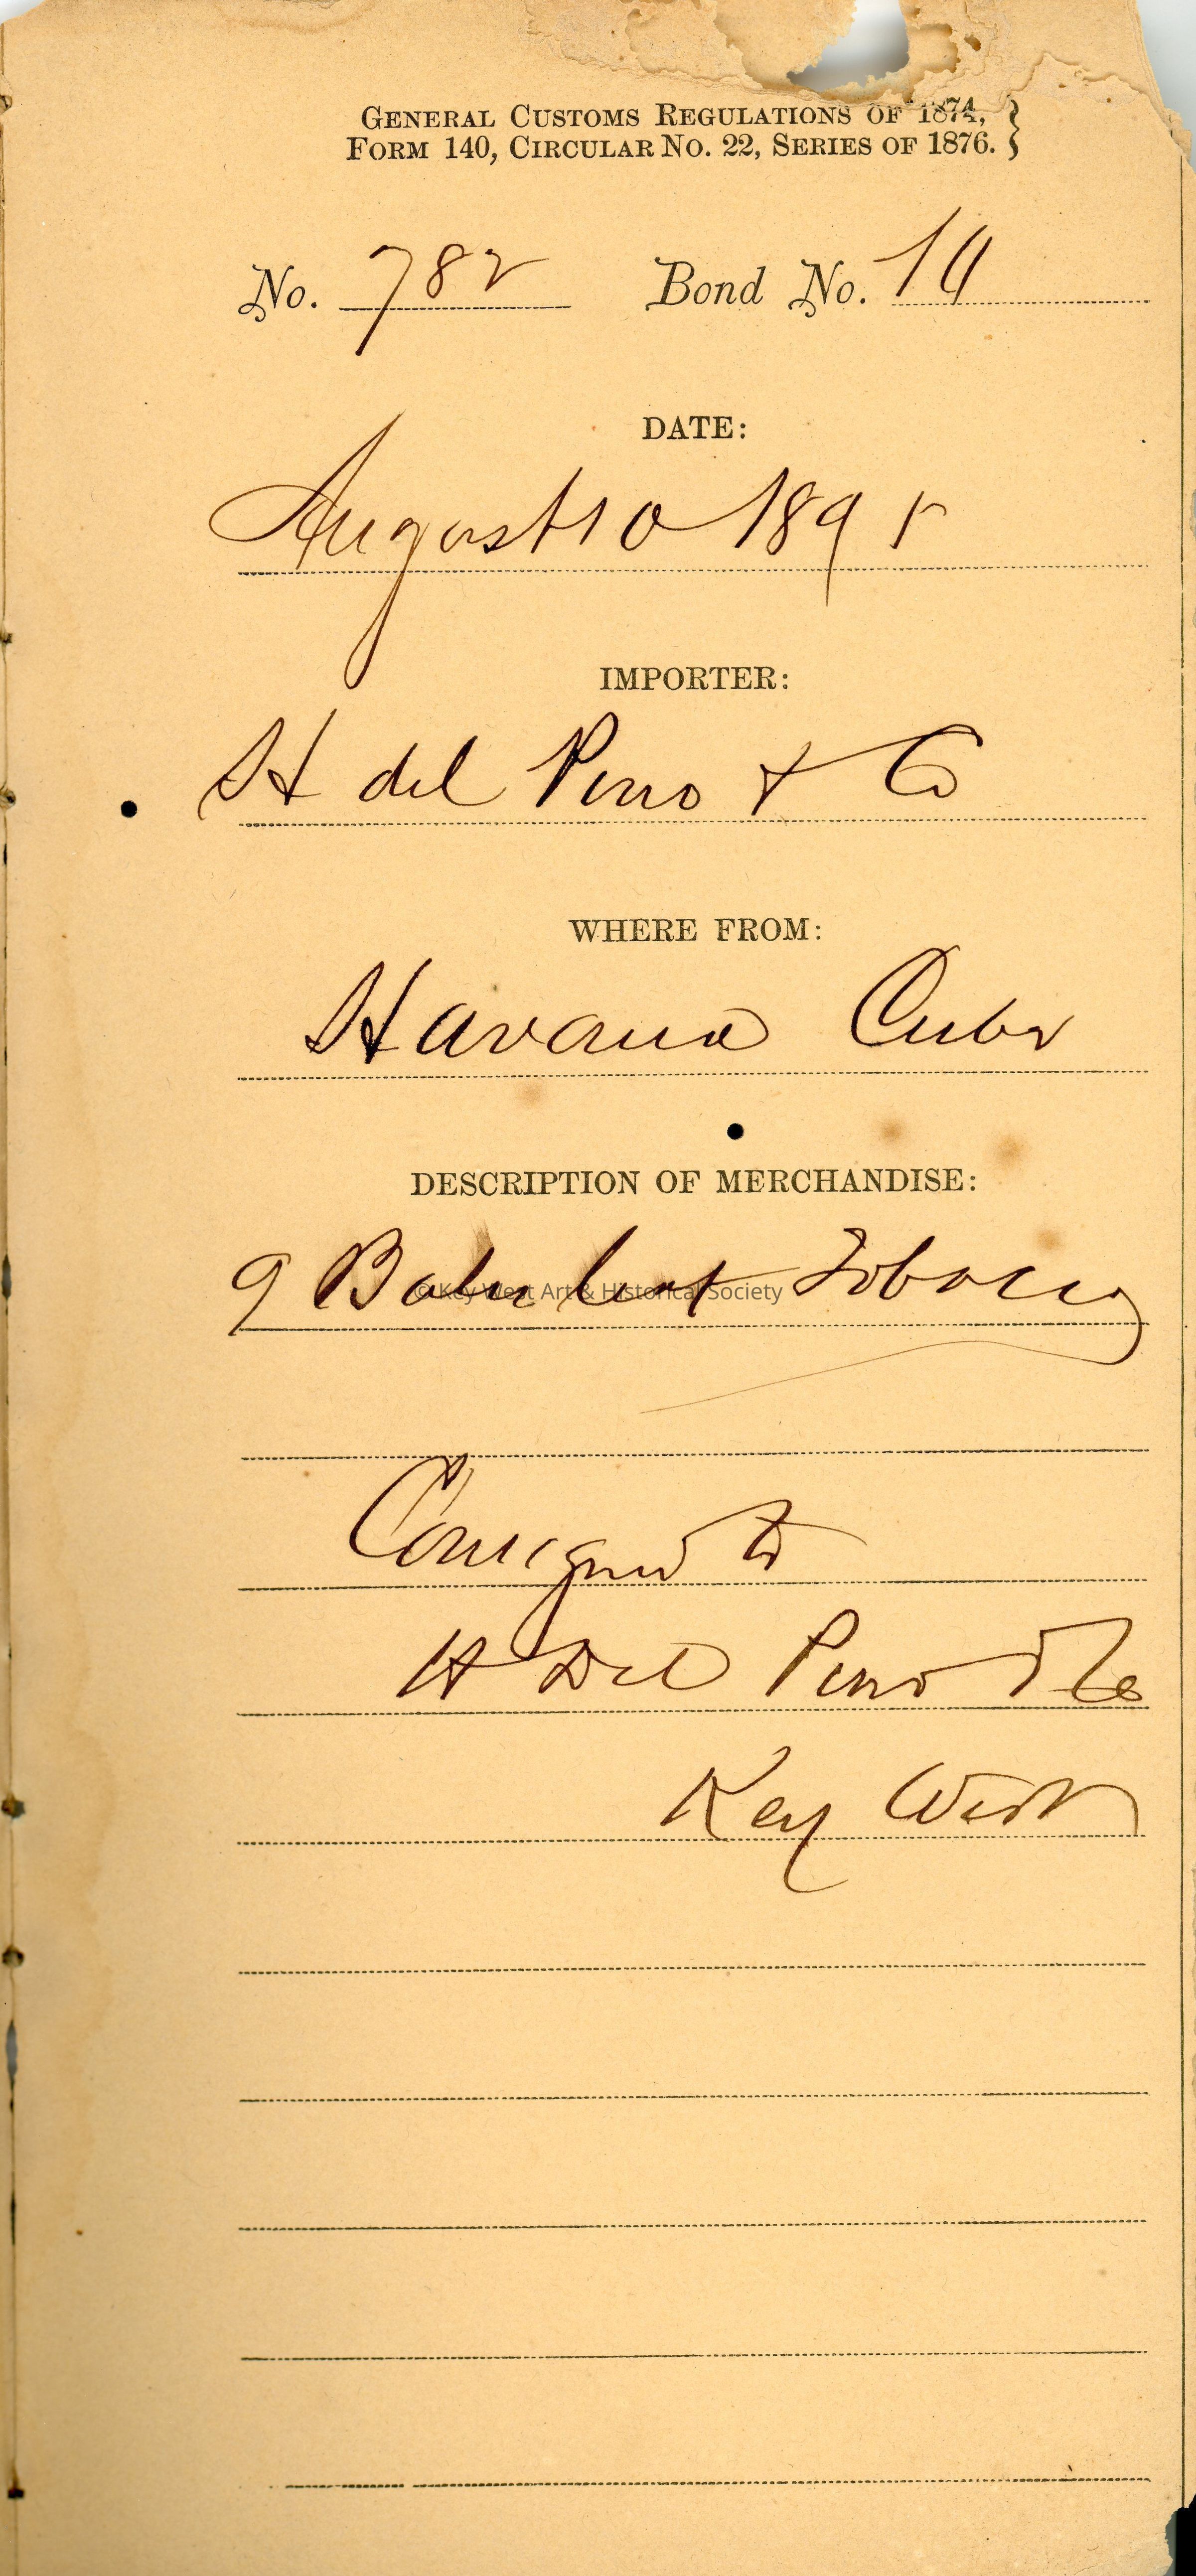 GENERAL CUSTOMS REGULATIONS OF 1874, }
FORM 140, CIRCULAR NO. 22, SERIES OF 1876. }
No. 782 Bond No. 14
DATE:
August 10 1895
IMPORTER:
H del Pino & Co
WHERE FROM:
Havana Cuba
DESCRIPTION OF MERCHANDISE:
9 Bales leaf Tobacco
© Key West Art & Historical Society
Consigned to
H Del Pino & Co
Key West